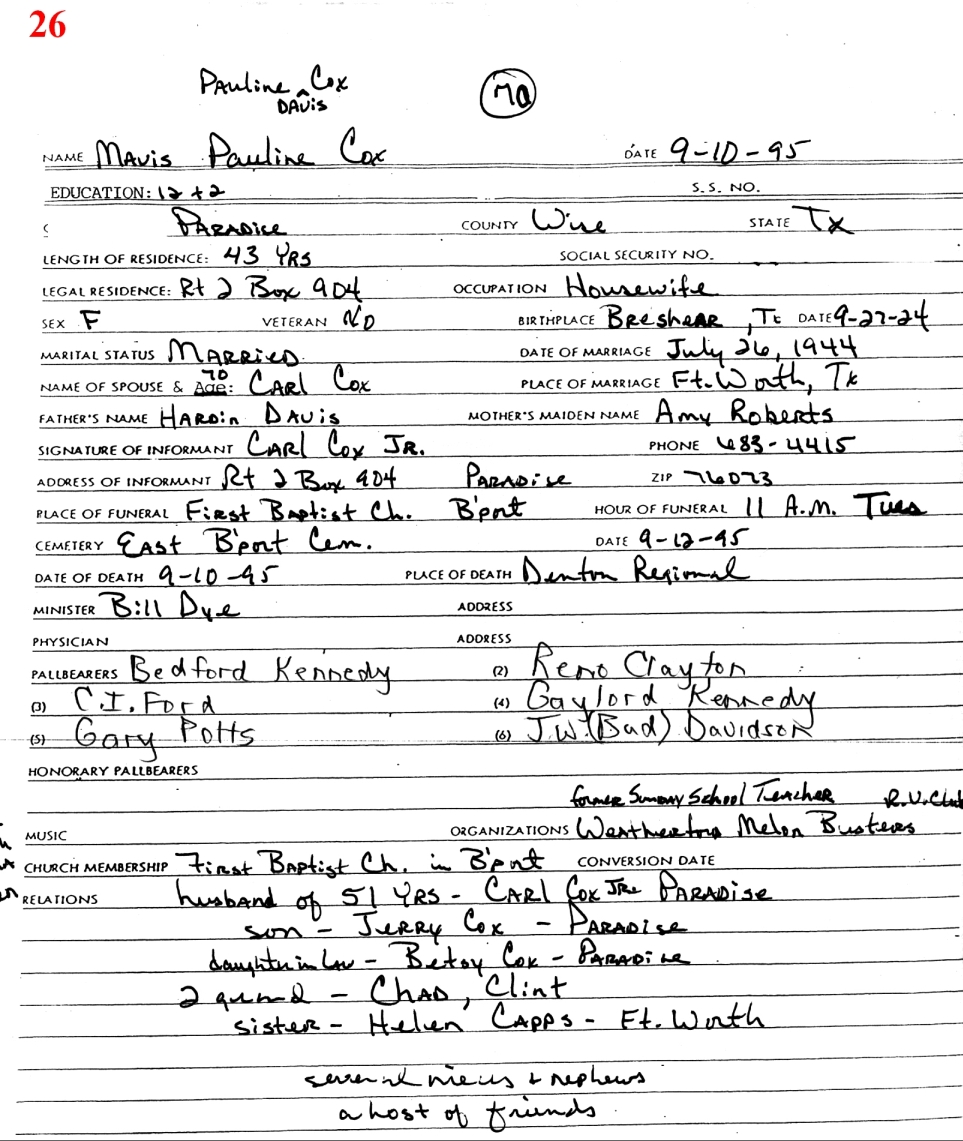 26
Pauline Cox
DAvis
70
NAME MAvis Pauline Cox DATE 9-10-95
EDUCATION: 12 + 2 S.S. NO.
PARADise COUNTY Wise STATE Tx
LENGTH OF RESIDENCE: 43 YRS SOCIAL SECURITY NO.
LEGAL RESIDENCE: Rt 2 Box 904 OCCUPATION Housewife
SEX F VETERAN NO BIRTHPLACE BResheAR, Tx DATE 9-27-24
MARITAL STATUS MARRIED DATE OF MARRIAGE July 26, 1944
NAME OF SPOUSE & Age: 70 CARL Cox PLACE OF MARRIAGE Ft. Worth, Tx
FATHER'S NAME HARDin DAvis MOTHER'S MAIDEN NAME Amy Roberts
SIGNATURE OF INFORMANT CARL Cox JR. PHONE 683-4415
ADDRESS OF INFORMANT Rt 2 Box 904 PARADise ZIP 76073
PLACE OF FUNERAL First Baptist Ch. B'port HOUR OF FUNERAL 11 A.M. Tues
CEMETERY East B'port Cem. DATE 9-12-95
DATE OF DEATH 9-10-95 PLACE OF DEATH Denton Regional
MINISTER Bill Dye ADDRESS
PHYSICIAN ADDRESS
PALLBEARERS Bedford Kennedy (2) Reno Clayton
(3) C.I. Ford (4) Gaylord Kennedy
(5) Gary Potts (6) J.W. (Bud) Davidson
HONORARY PALLBEARERS
former Sunday School Teacher R.V. Club
MUSIC ORGANIZATIONS Weatherford Melon Busters
CHURCH MEMBERSHIP First Baptist Ch. in B'port CONVERSION DATE
RELATIONS husband of 51 YRS - CARL Cox JR. PARADise
son - JeRRy Cox - PARADise
daughter in law - Betsy Cox - PARADise
2 grand - CHAD, Clint
sister - Helen CAPPS - Ft. Worth
several nieces + nephews
a host of friends